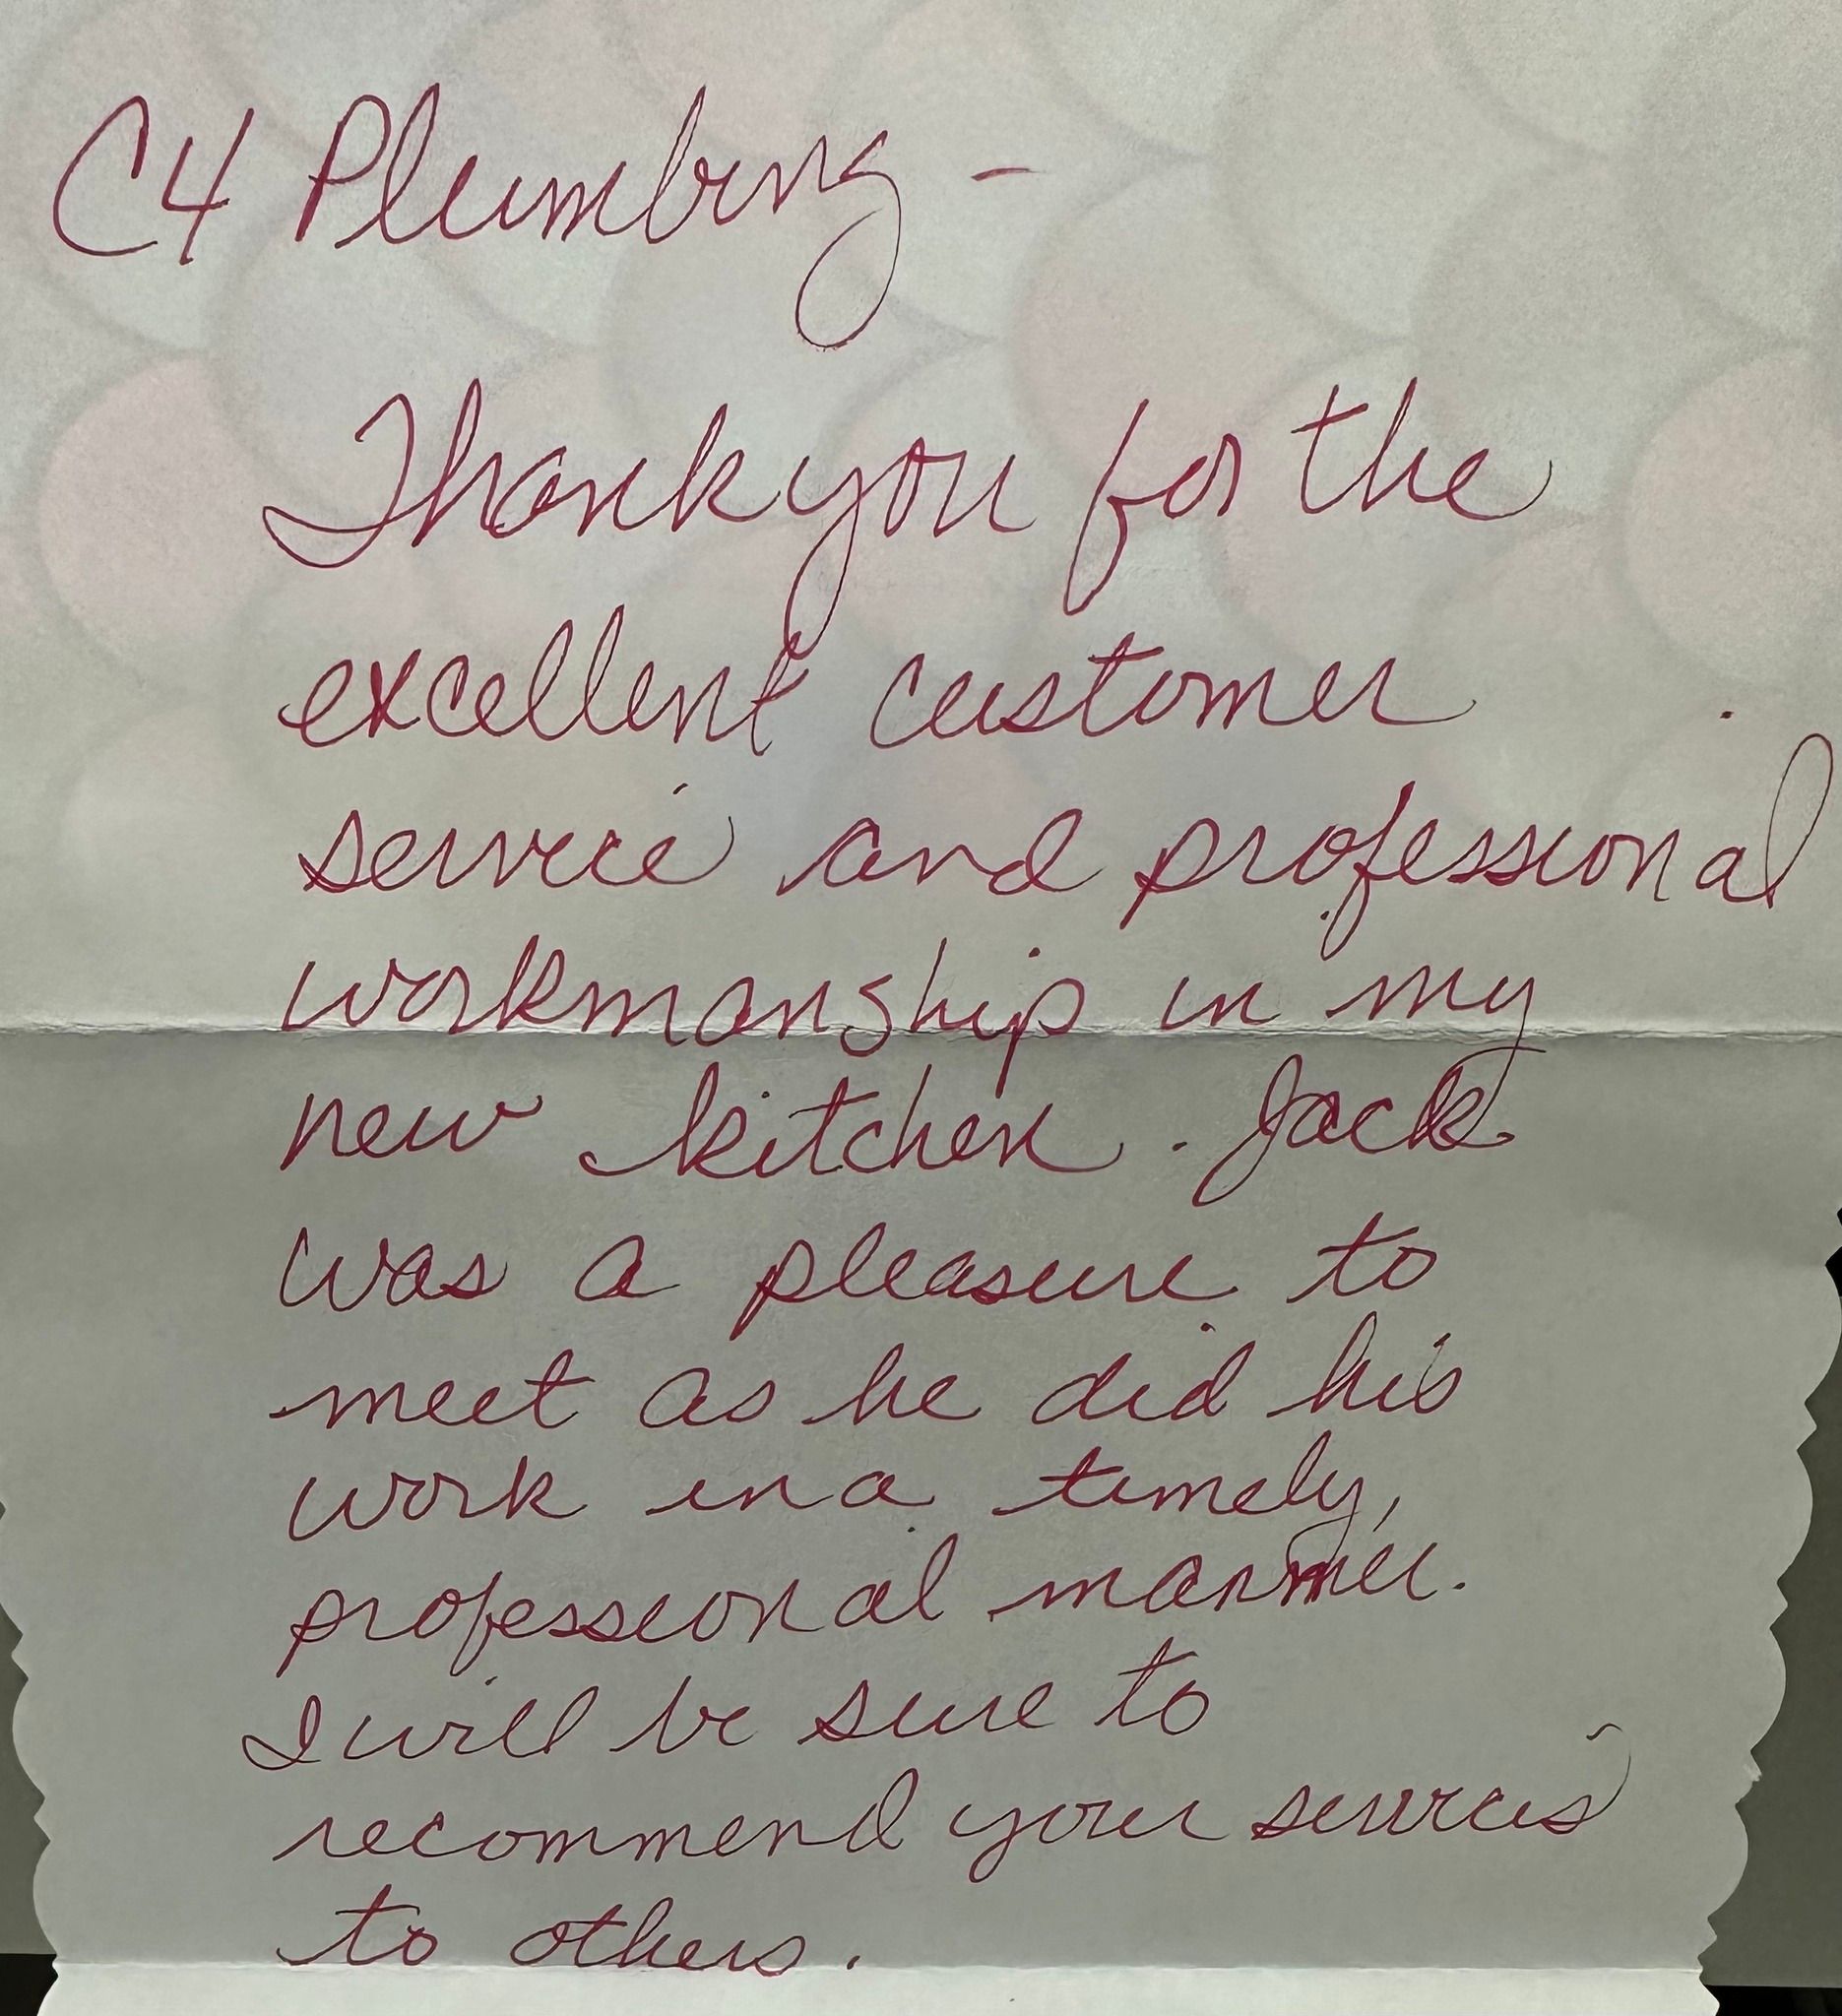 C4 Plumbing -
Thank you for the
excellent customer
service and professional
workmanship in my
new kitchen. Jack
was a pleasure to
meet as he did his
work in a timely,
professional manner.
I will be sure to
recommend your services
to others.